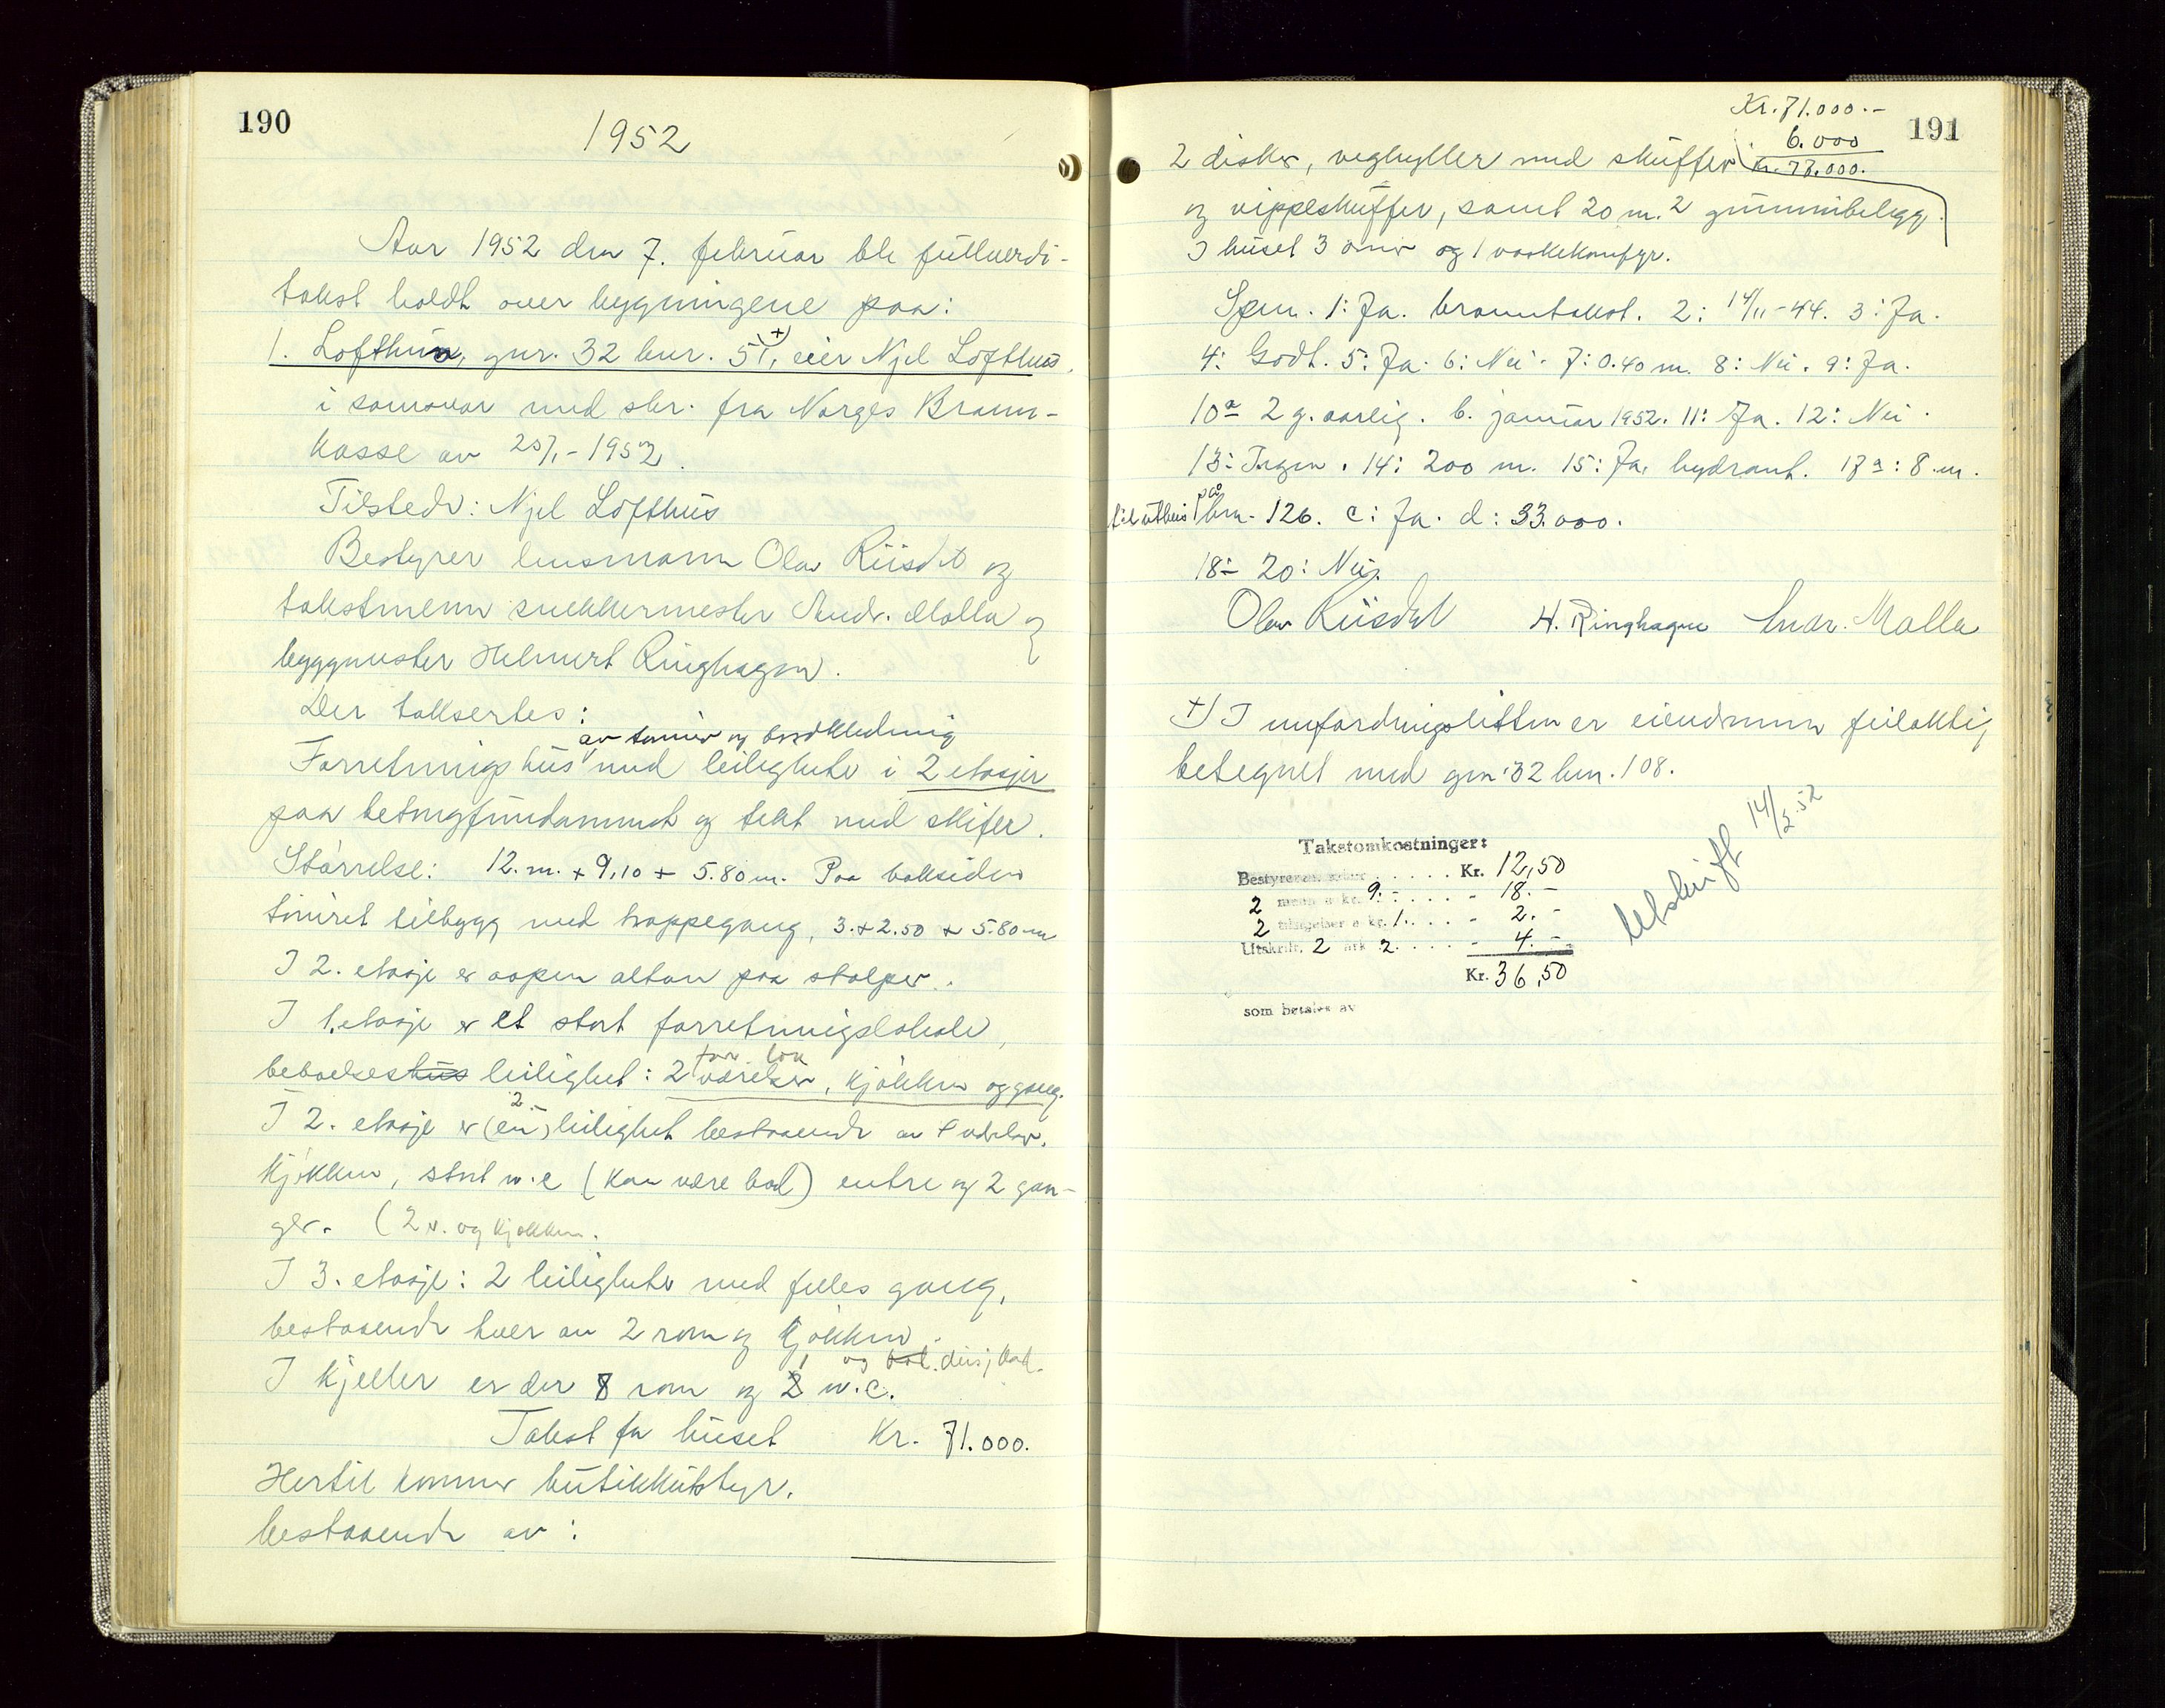 190
1952
Aar 1952 den 7. februar ble fullverdi-
takst holdt over bygningene paa:
1. Lofthus, gnr. 32 bnr. 51, +) eier Njel Lofthus,
i samsvar med skr. fra Norges Brann-
kasse av 25/1-1952.
Tilstede: Njel Lofthus
Bestyrer lensmann Olav Riisdal og
takstmenn snekkermester Andr. Malla og
byggmester Helmert Ringhagen.
Der taksertes:
av tømmer og bordkledning
Forretningshus med leiligheter i 2 etasjer
paa betongfundament og tekt med skifer.
Størrelse: 12. m. + 9,10 + 5.80 m. Paa baksiden
tømret tilbygg med trappegang, 3. + 2.50 + 5.80 m
I 2. etasje er aapen altan paa stolper.
I 1. etasje er et stort forretningslokale,
beboelseshus leilighet: 2 værelser, kjøkken og gang.
2
I 2. etasje er (en) leilighet bestaaende av 4 værelser.
kjøkken, stort w.c (kan være bad) entre og 2 gan-
ger. (2 v. og kjøkken.
I 3. etasje: 2 leiligheter med felles gang,
bestaaende hver av 2 rom og kjøkken.
I kjeller er der 8 rom og 1 w.c.
Takst for huset Kr. 71.000.
Hertil kommer butikkutstyr.
bestaaende av:
191
Kr. 71.000.-
6.000
Kr. 77.000.
2 disker, veghyller med skuffer
og vippeskuffer, samt 20 m.2 gummibelegg.
I huset 3 ovner og 1 vaskekomfyr.
Spm. 1: Ja. branntakst. 2: 14/11-44. 3: Ja.
4: Godt. 5: Ja. 6: Nei. 7: 0.40 m. 8: Nei. 9: Ja.
10a 2 g. aarlig. b. januar 1952. 11: Ja. 12: Nei.
13: Ingen. 14: 200 m. 15: Ja, hydrant. 17a: 8 m.
til uthus paa bnr. 126. c: Ja. d: 33.000.
18- 20: Nei.
Olav Riisdal H. Ringhagen Andr. Malla
+) I anfordringslisten er eiendommen feilaktig
betegnet med gnr. 32 bnr. 108.
Utskrift 14/2.52
Takstomkostninger:
Bestyreren . . . . . Kr. 12,50
2 menn a kr. 9.- . . . - 18.-
2 a kr. 1. . . . - 2.-
Utskrift, 2 ark 2. . . . . - 4.-
Kr. 36,50
som betales av